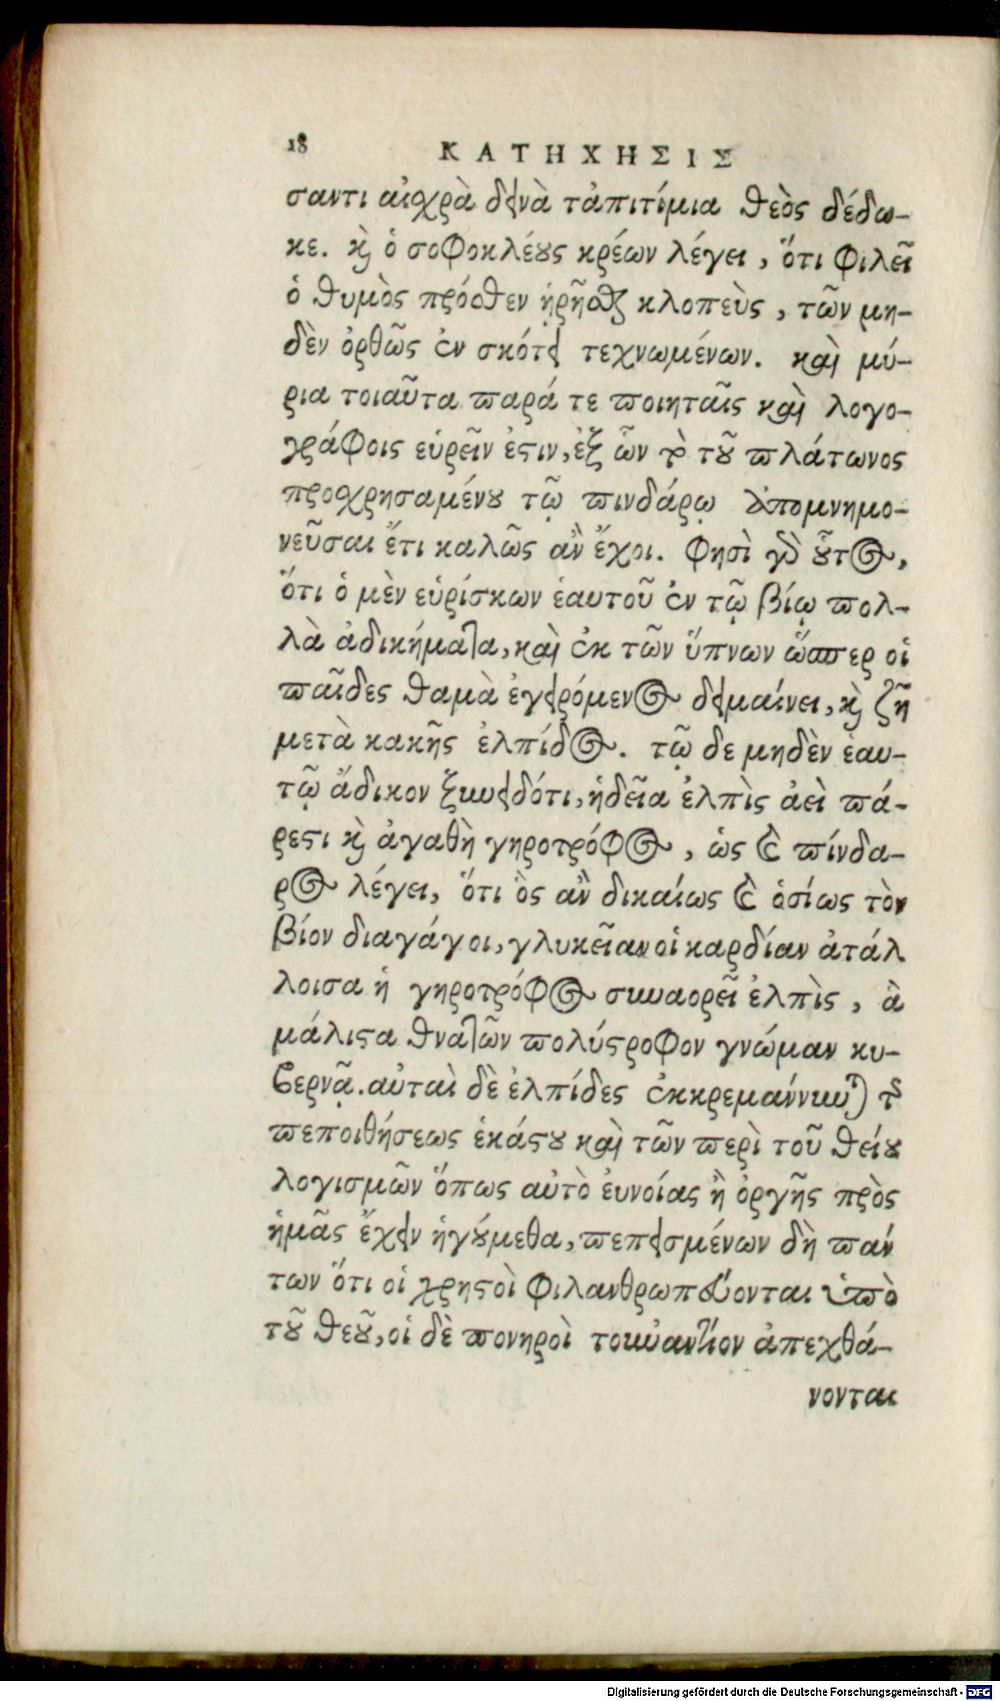 18 ΚΑΤΗΧΗΣΙΣ
σαντι αἰχρὰ δεινὰ τἀπιτίμια θεὸς δέδω-
κε. καὶ ὁ σοφοκλέους κρέων λέγει, ὅτι φιλεῖ
ὁ θυμὸς πρόσθεν ᾑρῆσθαι κλοπεὺς, τῶν μη-
δὲν ὀρθῶς ἐν σκότει τεχνωμένων. καὶ μύ-
ρια τοιαῦτα παρά τε ποιηταῖς καὶ λογο-
γράφοις εὑρεῖν ἐστιν, ἐξ ὧν τὸ τοῦ πλάτωνος
προχρησαμένου τῷ πινδάρῳ ἀπομνημο-
νεῦσαι ἔτι καλῶς ἂν ἔχοι. φησὶ γὰρ οὗτος,
ὅτι ὁ μὲν εὑρίσκων ἑαυτοῦ ἐν τῷ βίῳ πολ-
λὰ ἀδικήματα, καὶ ἐκ τῶν ὕπνων ὥσπερ οἱ
παῖδες θαμὰ ἐγειρόμενος δειμαίνει, καὶ ζῆ
μετὰ κακῆς ἐλπίδος. τῷ δε μηδὲν ἑαυ-
τῷ ἄδικον ξυνειδότι, ἡδεῖα ἐλπὶς ἀεὶ πά-
ρεστι καὶ ἀγαθὴ γηροτρόφος, ὡς καὶ πίνδα-
ρος λέγει, ὅτι ὃς ἂν δικαίως καὶ ὁσίως τὸν
βίον διαγάγοι, γλυκεῖαν οἱ καρδίαν ἀτάλ
λοισα ἡ γηροτρόφος συναορεῖ ἐλπὶς, ἃ
μάλιστα θνατῶν πολύστροφον γνώμαν κυ-
βερνᾷ. αὗται δὲ ἐλπίδες ἐκκρεμάννυνται τῆς
πεποιθήσεως ἑκάστου καὶ τῶν περὶ τοῦ θείου
λογισμῶν ὅπως αὐτὸ ἐυνοίας ἢ ὀργῆς πρὸς
ἡμᾶς ἔχειν ἡγούμεθα, πεπεισμένων δὴ πάν
των ὅτι οἱ χρηστοὶ φιλανθρωπεύονται ὑπὸ
τοῦ θεοῦ, οἱ δὲ πονηροὶ τουναντίον ἀπεχθά-
νονται
Digitalisierung gefördert durch die Deutsche Forschungsgemeinschaft - DFG